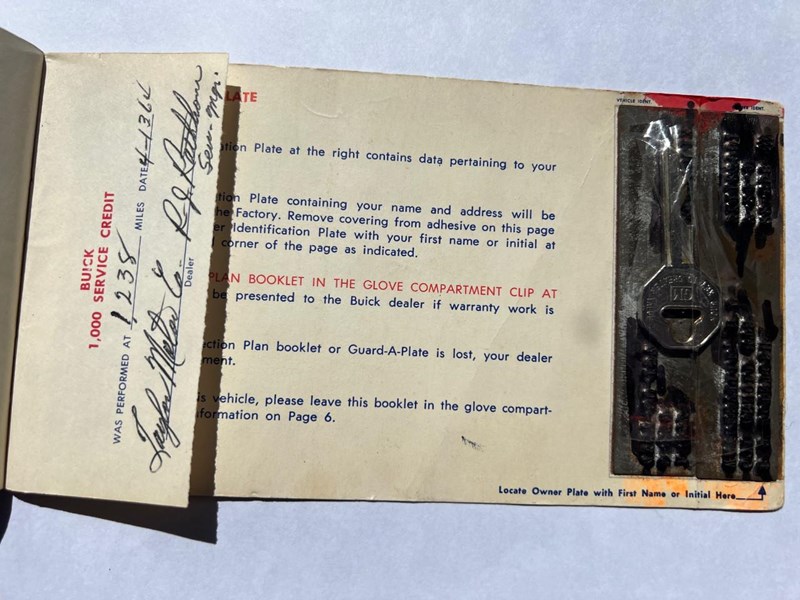 BUICK
1,000 SERVICE CREDIT
WAS PERFORMED AT 1238 MILES DATE
Taylor Motor Co
Dealer
LATE
tion Plate at the right contains data pertaining to your
tion Plate containing your name and address will be
he Factory. Remove covering from adhesive on this page
er Identification Plate with your first name or initial at
corner of the page as indicated.
PLAN BOOKLET IN THE GLOVE COMPARTMENT CLIP AT
be presented to the Buick dealer if warranty work is
ction Plan booklet or Guard-A-Plate is lost, your dealer
ment.
is vehicle, please leave this booklet in the glove compart-
formation on Page 6.
VEHICLE IDENT.
IDENT.
Locate Owner Plate with First Name or Initial Here